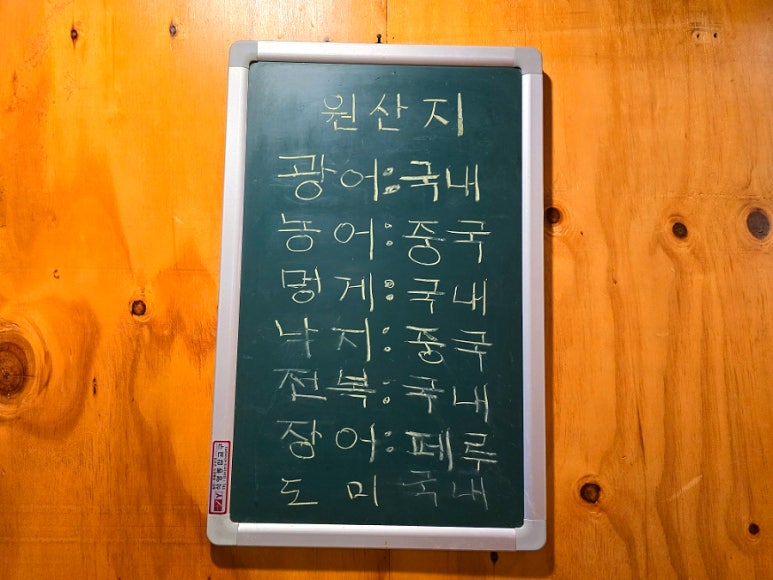 원산지
광어:국내
농어:중국
멍게:국내
낙지:중국
전복:국내
장어:페루
도미 국내